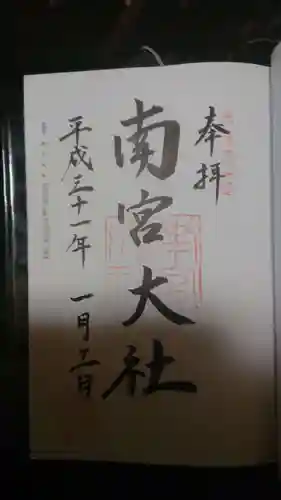 奉拝
南宮大社
平成三十一年 一月二日